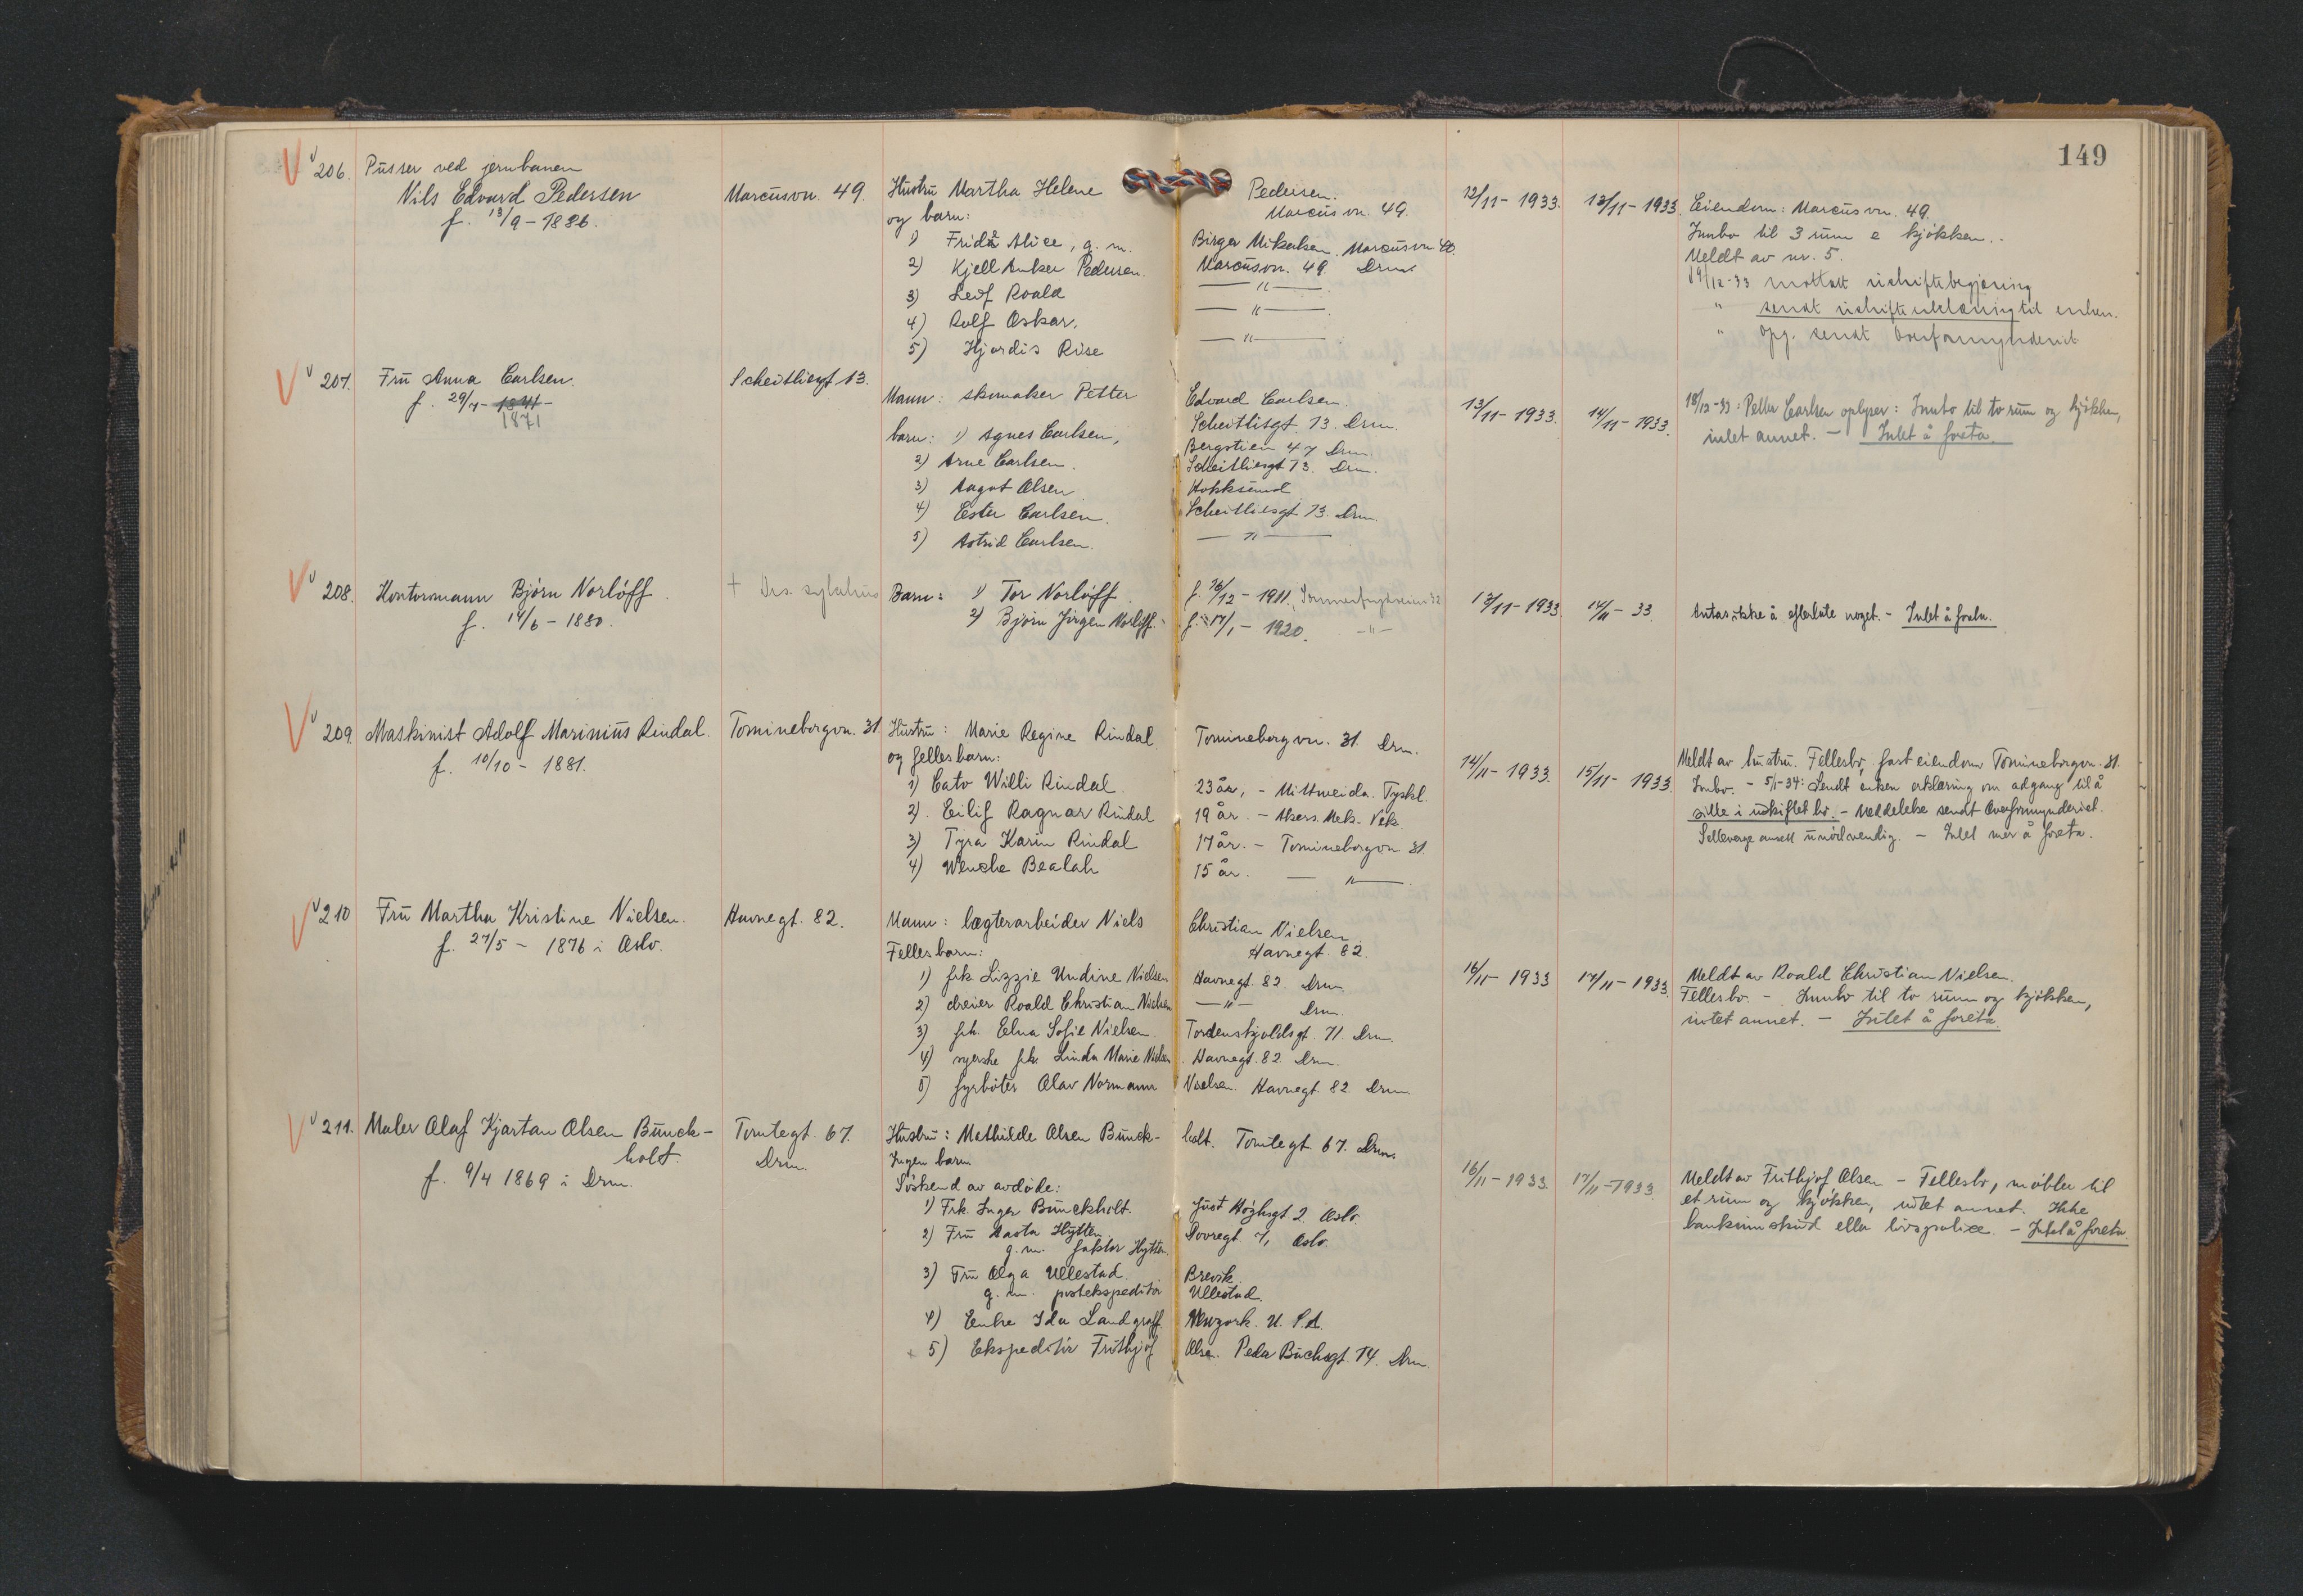 149
206. Pusser ved jernbanen
Nils Edvard Pedersen
f. 13/9 - 1886.
Marcusvn. 49.
Hustru Martha Helene Pedersen.
og barn: Marcusvn. 49.
1) Frida Alice, g. m. Birger Mikalsen. Marcusvn.
2) Kjell Anker Pedersen. Marcusvn. 49. Drm.
3) Leif Roald — " —
4) Rolf Oskar. — " —
5) Hjørdis Rise — " —
12/11 - 1933.
13/11 - 1933.
Eiendom: Marcusvn. 49.
Innbo til 3 rum & kjøkken.
Meldt av nr. 5.
19/12-33 mottatt uskiftebegjæring
" sendt uskifteerklæring til enken.
" Opg. sendt Overformynderiet
207. Fru Anna Carlsen.
f. 29/7 - 1841 -
1871
Scheitliesgt 13.
Mann: skomaker Petter Edvard Carlsen.
Scheitlisgt. 13. Drm.
barn: 1) Agnes Carlsen, Bergstien 47 Drm.
2) Arne Carlsen. Scheitliesgt 13. Drm.
3) Aagot Olsen Hokksund
4) Ester Carlsen. Scheitliesgt 13. Drm.
5) Astrid Carlsen. — " —
13/11 - 1933.
14/11 - 1933.
18/12-33: Petter Carlsen oplyser: Innbo til to rum og kjøkken,
intet annet. - Intet å foreta.
208. Kontormann Bjørn Norløff.
f. 14/6 - 1880.
+ Drs. sykehus
Barn: 1) Tor Norløff. f. 16/12 - 1911.
2) Bjørn Jørgen Norløff. f. 17/1 - 1920. - " -
13/11 - 1933
14/11 - 33.
Antas ikke å efterlate noget. - Intet å foreta.
209. Maskinist Adolf Marinius Rindal.
f. 10/10 - 1881.
Tomineborgvn. 31
Hustru: Marie Regine Rindal. Tomineborgvn. 31. Drm.
og fellesbarn:
1) Cato Willi Rindal. 23 år, - Mittweida. Tyskl.
2) Eilif Ragnar Rindal 19 år. - Akers Mek. Vek.
3) Tyra Karin Rindal 17 år. - Tomineborgvn 31.
4) Wenche Bealah 15 år. — " —
14/11 - 1933.
15/11 - 1933
Meldt av hustru. Fellesbo, fast eiendom Tomineborgvn. 31.
Innbo. - 5/1-34: Sendt enken erklæring om adgang til å
sitte i uskiftet bo. - Meddelelse sendt Overformynderiet.
Setteverge ansett unødvendig. - Intet mer å foreta.
210 Fru Martha Kristine Nielsen.
f. 27/5 - 1876 i Oslo.
Havnegt. 82.
Mann: lægterarbeider Niels Christian Nielsen
Fellesbarn: Havnegt. 82.
1) frk. Lizzie Undine Nielsen Havnegt. 82. Drm.
2) dreier Roald Christian Nielsen — " — Drm.
3) frk. Edna Sofie Nielsen. Tordenskjoldsgt. 71. Drm.
4) syerske frk. Linda Marie Nielsen. Havnegt. 82. Drm.
5) fyrbøter Olav Normann Nielsen. Havnegt. 82. Drm.
16/11 - 1933
17/11 - 1933.
Meldt av Roald Christian Nielsen.
Fellesbo. - Innbo til to rum og kjøkken,
intet annet. - Intet å foreta.
211. Maler Olaf Kjartan Olsen Bunck-
holt.
f. 9/4 1869 i Drm.
Tomtegt. 67.
Drm.
Hustru: Mathilde Olsen Bunckholt. Tomtegt. 67. Drm.
Ingen barn
Søskend av avdøde:
1) Frk. Inger Bunckholt. Just Høghsgt. 2. Oslo.
2) Fru Aasta Hytten, Dovregt 7, Oslo.
g. m. faktor Hytten.
3) Fru Olga Ullestad. Brevik.
g. m. postekspeditør Ullestad.
4) Enke Ida Landgraff Newyork. U. S. A.
5) Ekspeditør Frithjof Olsen. Peder Buchsgt. 14. Drm.
16/11 - 1933.
17/11 - 1933.
Meldt av Frithjof Olsen - Fellesbo, møbler til
et rum og kjøkken, intet annet. Ikke
bankinnskud eller livspolise. - Intet å foreta.